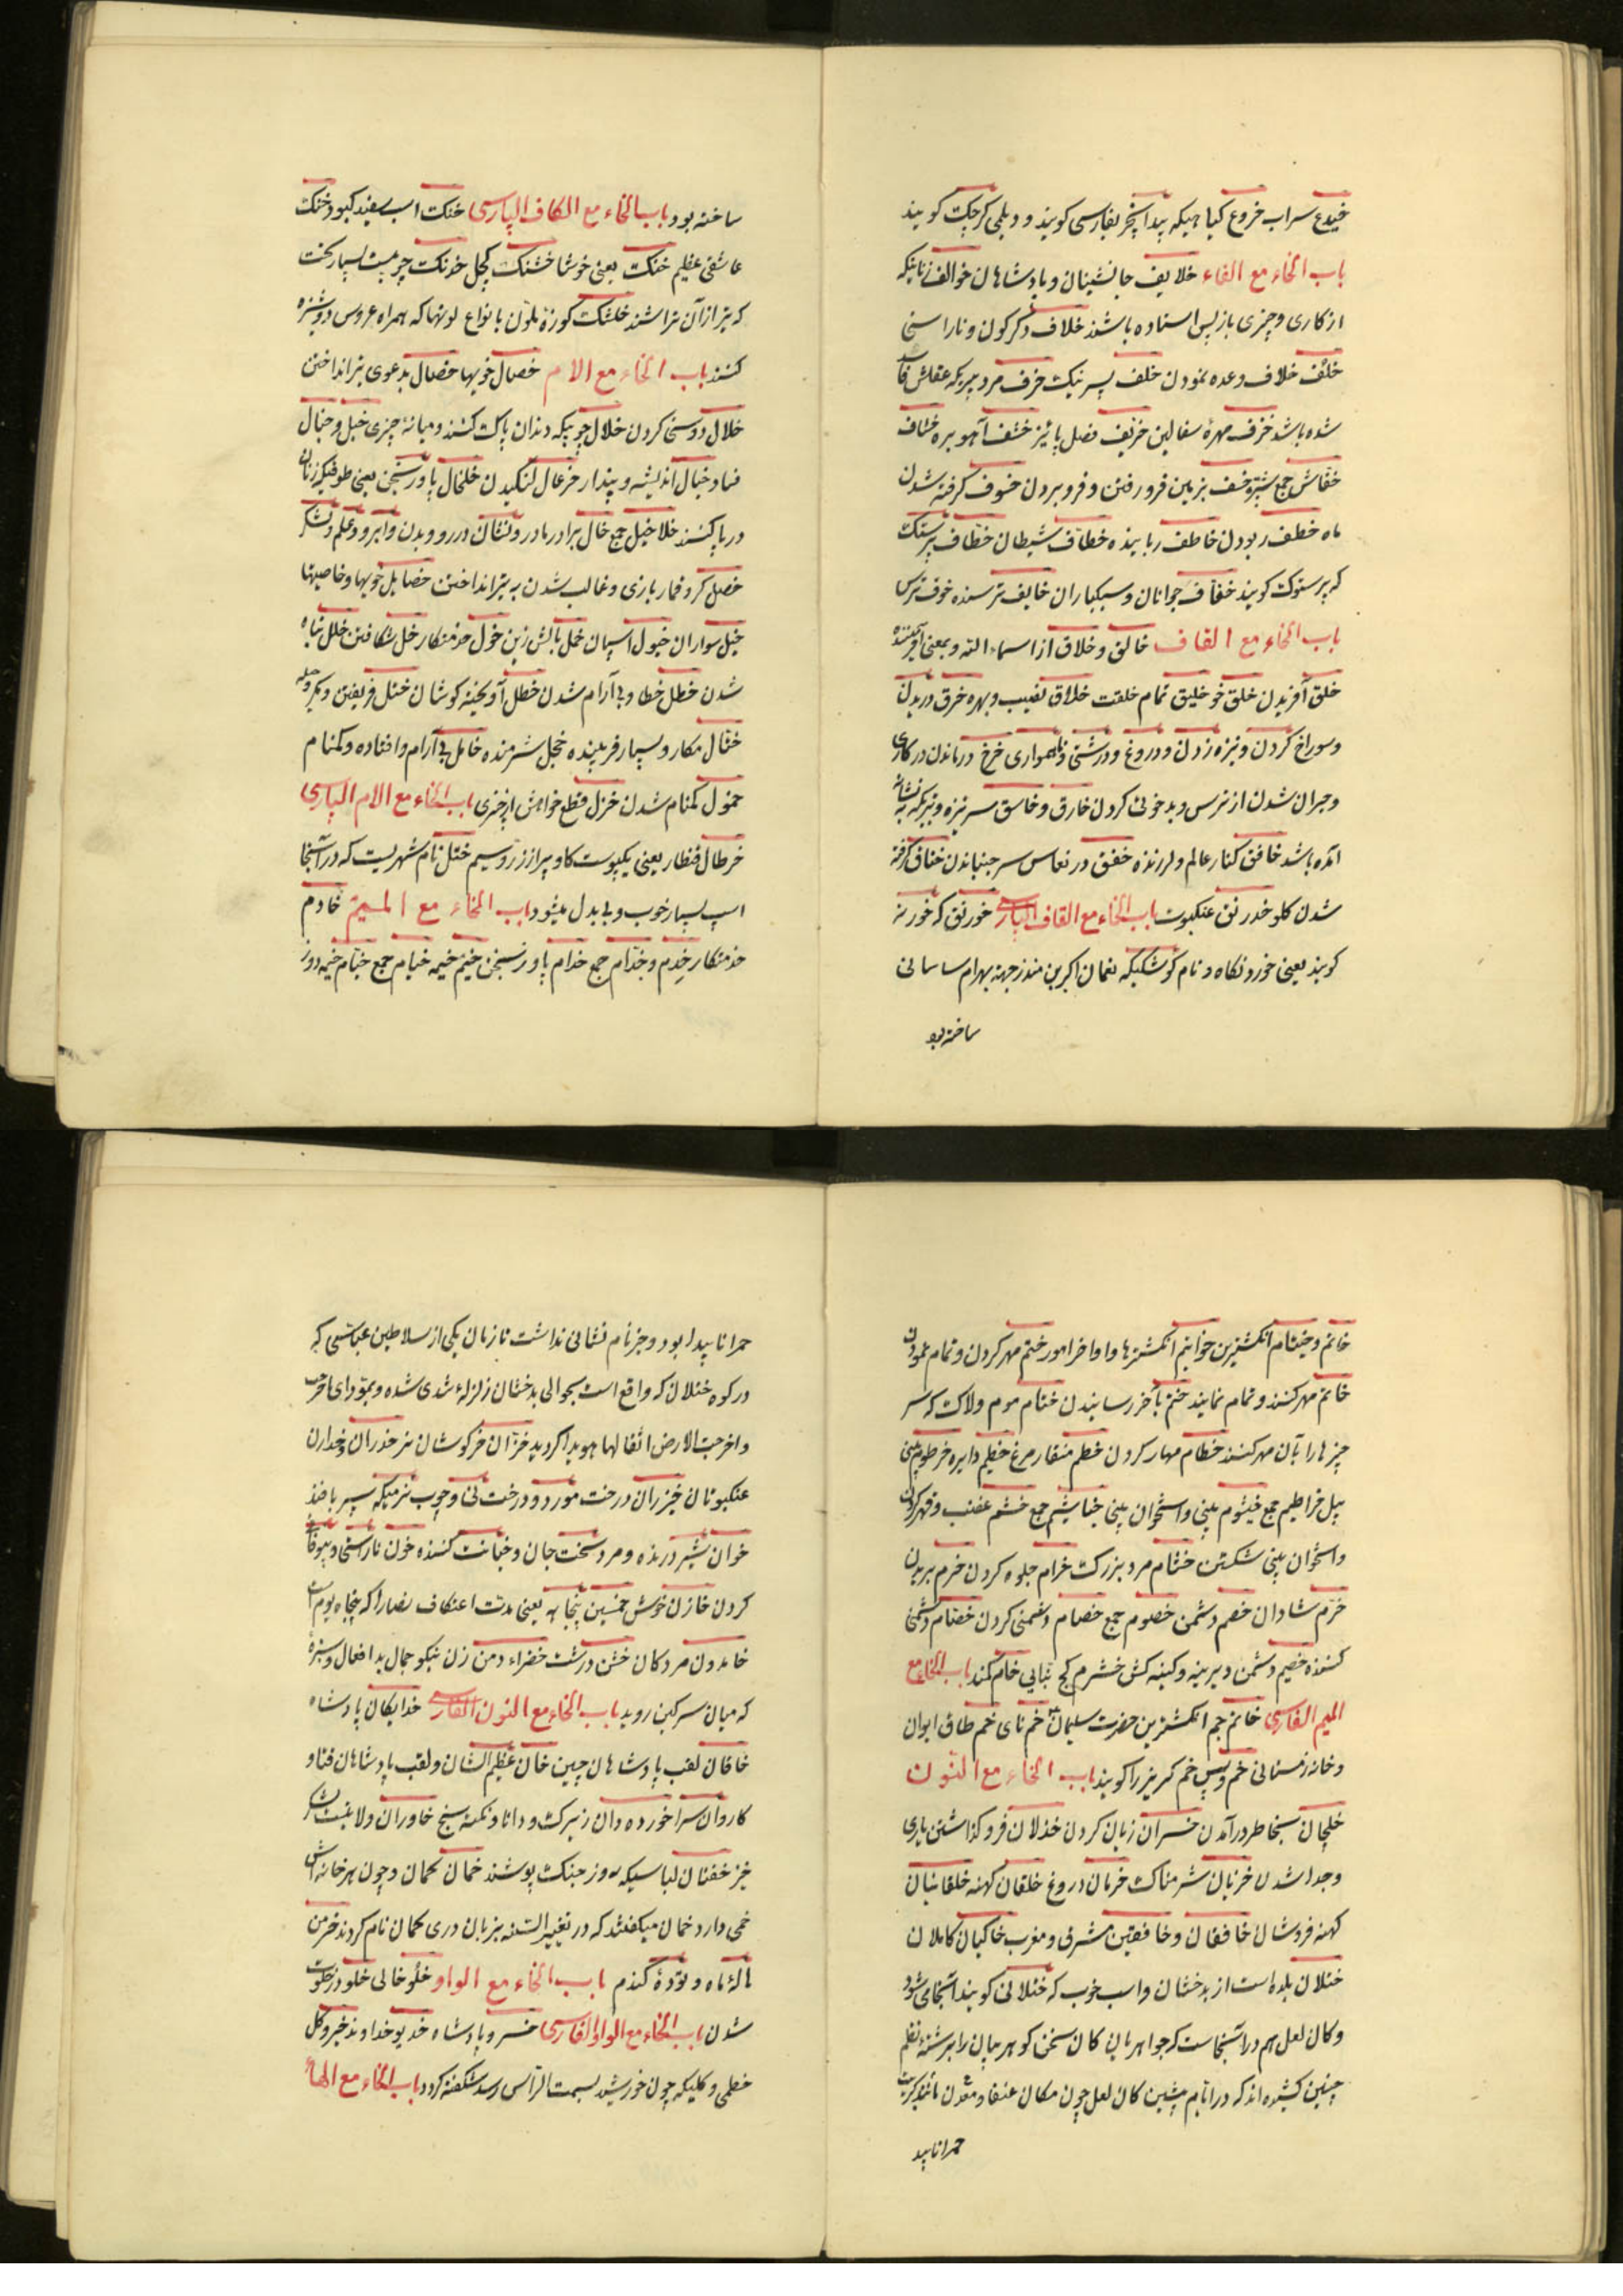 خیدع سراب خروع کیاهیکه بیدانجیر بفارسی کویند و دیلمی کرجک کویند
باب الخاء مع الفاء خلایف جانشینان و پادشاهان خوالف زنانیکه
از کاری و چیزی بازپس استاده باشند خلاف دکرکون و ناراستی
خلف خلاف وعده نمودن خلف پسر نیک خرف مرد پیریکه عقلش فاسد
شده باشد خزف مهرهٔ سفالین خریف فصل پائیز خشف آهو بره خشاف
خفاش جمع شبپره خسف بزمین فرو رفتن و فرو بردن خسوف کرفته شدن
ماه خطف ربودن خاطف رباینده خطاف شیطان خطاف پرستک
که پرستوک کویند خفاف جوانان و سبکباران خایف ترسنده خوف ترس
باب الخاء مع القاف خالق و خلاق از اسماء الله و بمعنی آفریننده
خلق آفریدن خلق خو خلیق تمام خلقت خلاق نصیب و بهره خرق دریدن
و سوراخ کردن و نیزه زدن و دروغ و درشتی و ناهمواری خرق درماندن در کاری
و حیران شدن از ترس و بدخوئی کردن خارق و خاسق سرنیزه و تیریکه به نشانه
آمده باشد خافق کنار عالم و لرزنده خفق در نعاس سر جنباندن خناق کرفته
شدن کلو خدرنق عنکبوت باب الخاء مع القاف الپارسی خورنق که خورنه
کویند یعنی خوردنکاه و نام کوشکیکه نعمان اکبر بن منذر جهة بهرام ساسانی
ساخته بود
ساخته بود باب الخاء مع الکاف الپارسی خنک اسب سفید کبود خنک
عاشقی عظیم خنک یعنی خوشا خشنک کچل خدنک چوبیست بسیار سخت
که تیر از آن تراشند خلشک کوزهٔ ملون بانواع لونها که همراه عروس دوشیزه
کنند باب الخاء مع الام خصال خویها خصال بدعوی تیر انداختن
خلال دوستی کردن خلال چوبیکه دندان پاک کنند و میانهٔ چیزی خبل و خبال
فساد خیال اندیشه و پندار خزعال لنکیدن خلخال پاورنجن یعنی طوقیکه زنان
در پا کنند خلاخیل جمع خال برادر مادر و نشان در رو و بدن و ابر و علم و لشکر
خصل کرو قمار بازی و غالب شدن به تیر انداختن خصایل خویها و خاصیتها
خیل سواران خیول اسپان خمل بالش زین خول خدمتکار خل شکافتن خلل تباه
شدن خطل خطا و بی آرام شدن خطل آویخته کوشان ختل فریفتن و مکر و حیله
ختال مکار و بسیار فریبنده خجل شرمنده خامل بی آرام و افتاده و کمنام
خمول کمنام شدن خزل قطع خواهش از چیزی باب الخاء مع الام الپارسی
خرطال قنطار یعنی یکپوست کاو پر از زر و سیم ختل نام شهریست که در آنجا
اسپ بسیار خوب و بی بدل میشود باب الخاء مع المیم خادم
خدمتکار خدم و خدام جمع خدام پاورنجن خیم خیمه خیام جمع خیام خیمه دوز
خاتم و خیتام انکشترین خواتیم انکشترها و اواخر امور ختم مهر کردن و تمام نمودن
خاتم مهر کنند و تمام نمایند ختم بآخر رسانیدن ختام موم و لاک که سر
چیزها را بآن مهر کنند خطام مهار کردن خطم منقار مرغ خطیم دایره خرطوم بینی
پیل خراطیم جمع خیشوم بینی و استخوان بینی خیاشیم جمع خشم غضب و قهر کردن
و استخوان بینی شکستن خشام مرد بزرک خرام جلوه کردن خرم بریدن
خرم شادان خصم دشمن خصوم جمع خصام دشمنی کردن خصام دشمنی
کننده خصیم دشمن دیرینه و کینه کش خشرم کج بنایی خام کمند باب الخاء مع
المیم الفارسی خاتم جم انکشترین حضرت سلیمان خم نای خم طاق ایوان
و خانه زمستانی خم و پس خم کریز را کویند باب الخاء مع النون
خلجان بخاطر درآمدن خسران زیان کردن خذلان فرو کذاشتن یاری
و جدا شدن خزیان شرمناک خرمان دروغ خلقان کهنه خلقانیان
کهنه فروشان خافقان و خافقین مشرق و مغرب خاکیان کاملان
ختلان بلده است از بدخشان و اسب خوب که ختلانی کویند آنجا می شود
و کان لعل هم در آنجاست که جواهریان کان سخن کوهر بیان را برشتهٔ نظم
چنین کشیده اند که در ایام پیشین کان لعل چون مکان عنقا و معدن مانند کبریت
حمرا ناپید
حمرا ناپیدا بود و جز نام نشانی نداشت تا زمان یکی از سلاطین عباسی که
در کوه ختلان که واقع است بحوالی بدخشان زلزلهٔ شدی شده و بمودای آخرت
و اخرجت الارض اثقالها هویدا کردید خزان خرکوشان نر خدران و خدارن
عنکبوتان خیزران درخت مورد و درخت نی و چوب نرمیکه سپر بافند
خوان شیر درنده و مرد سخت جان و خیانت کننده خون ناراستی و بیوفائی
کردن خازن خوش خمسین پنجاه یعنی مدت اعتکاف نصارا که پنجاه یوم است
خامدون مردکان خشن درشت خضراء دمن زن نیکو جمال بد افعال و سبزهٔ
که میان سرکین روید باب الخاء مع النون الفارسی خدایکان پادشاه
خاقان لقب پادشاهان چین خان عظیم الشان و لقب پادشاهان ختا و
کاروان سرا خورده دان زیرک و دانا و نکته سنج خاوران ولایتست
خیز خفتان لباسیکه روز جنک پوشند خمان کمان و چون هر خانه اش
خمی دارد خمان میکفتند که در تغییر السنه بزبان دری کمان نام کردند خرمن
هالهٔ ماه و تودهٔ کندم باب الخاء مع الواو خلو خالی خلو در خلوت
شدن باب الخاء مع الواو الفارسی خسرو پادشاه خدیو خداوند خیرو کل
خطمی و کلیکه چون خورشید بسمت الراس رسد شکفته کردد باب الخاء مع الهاء